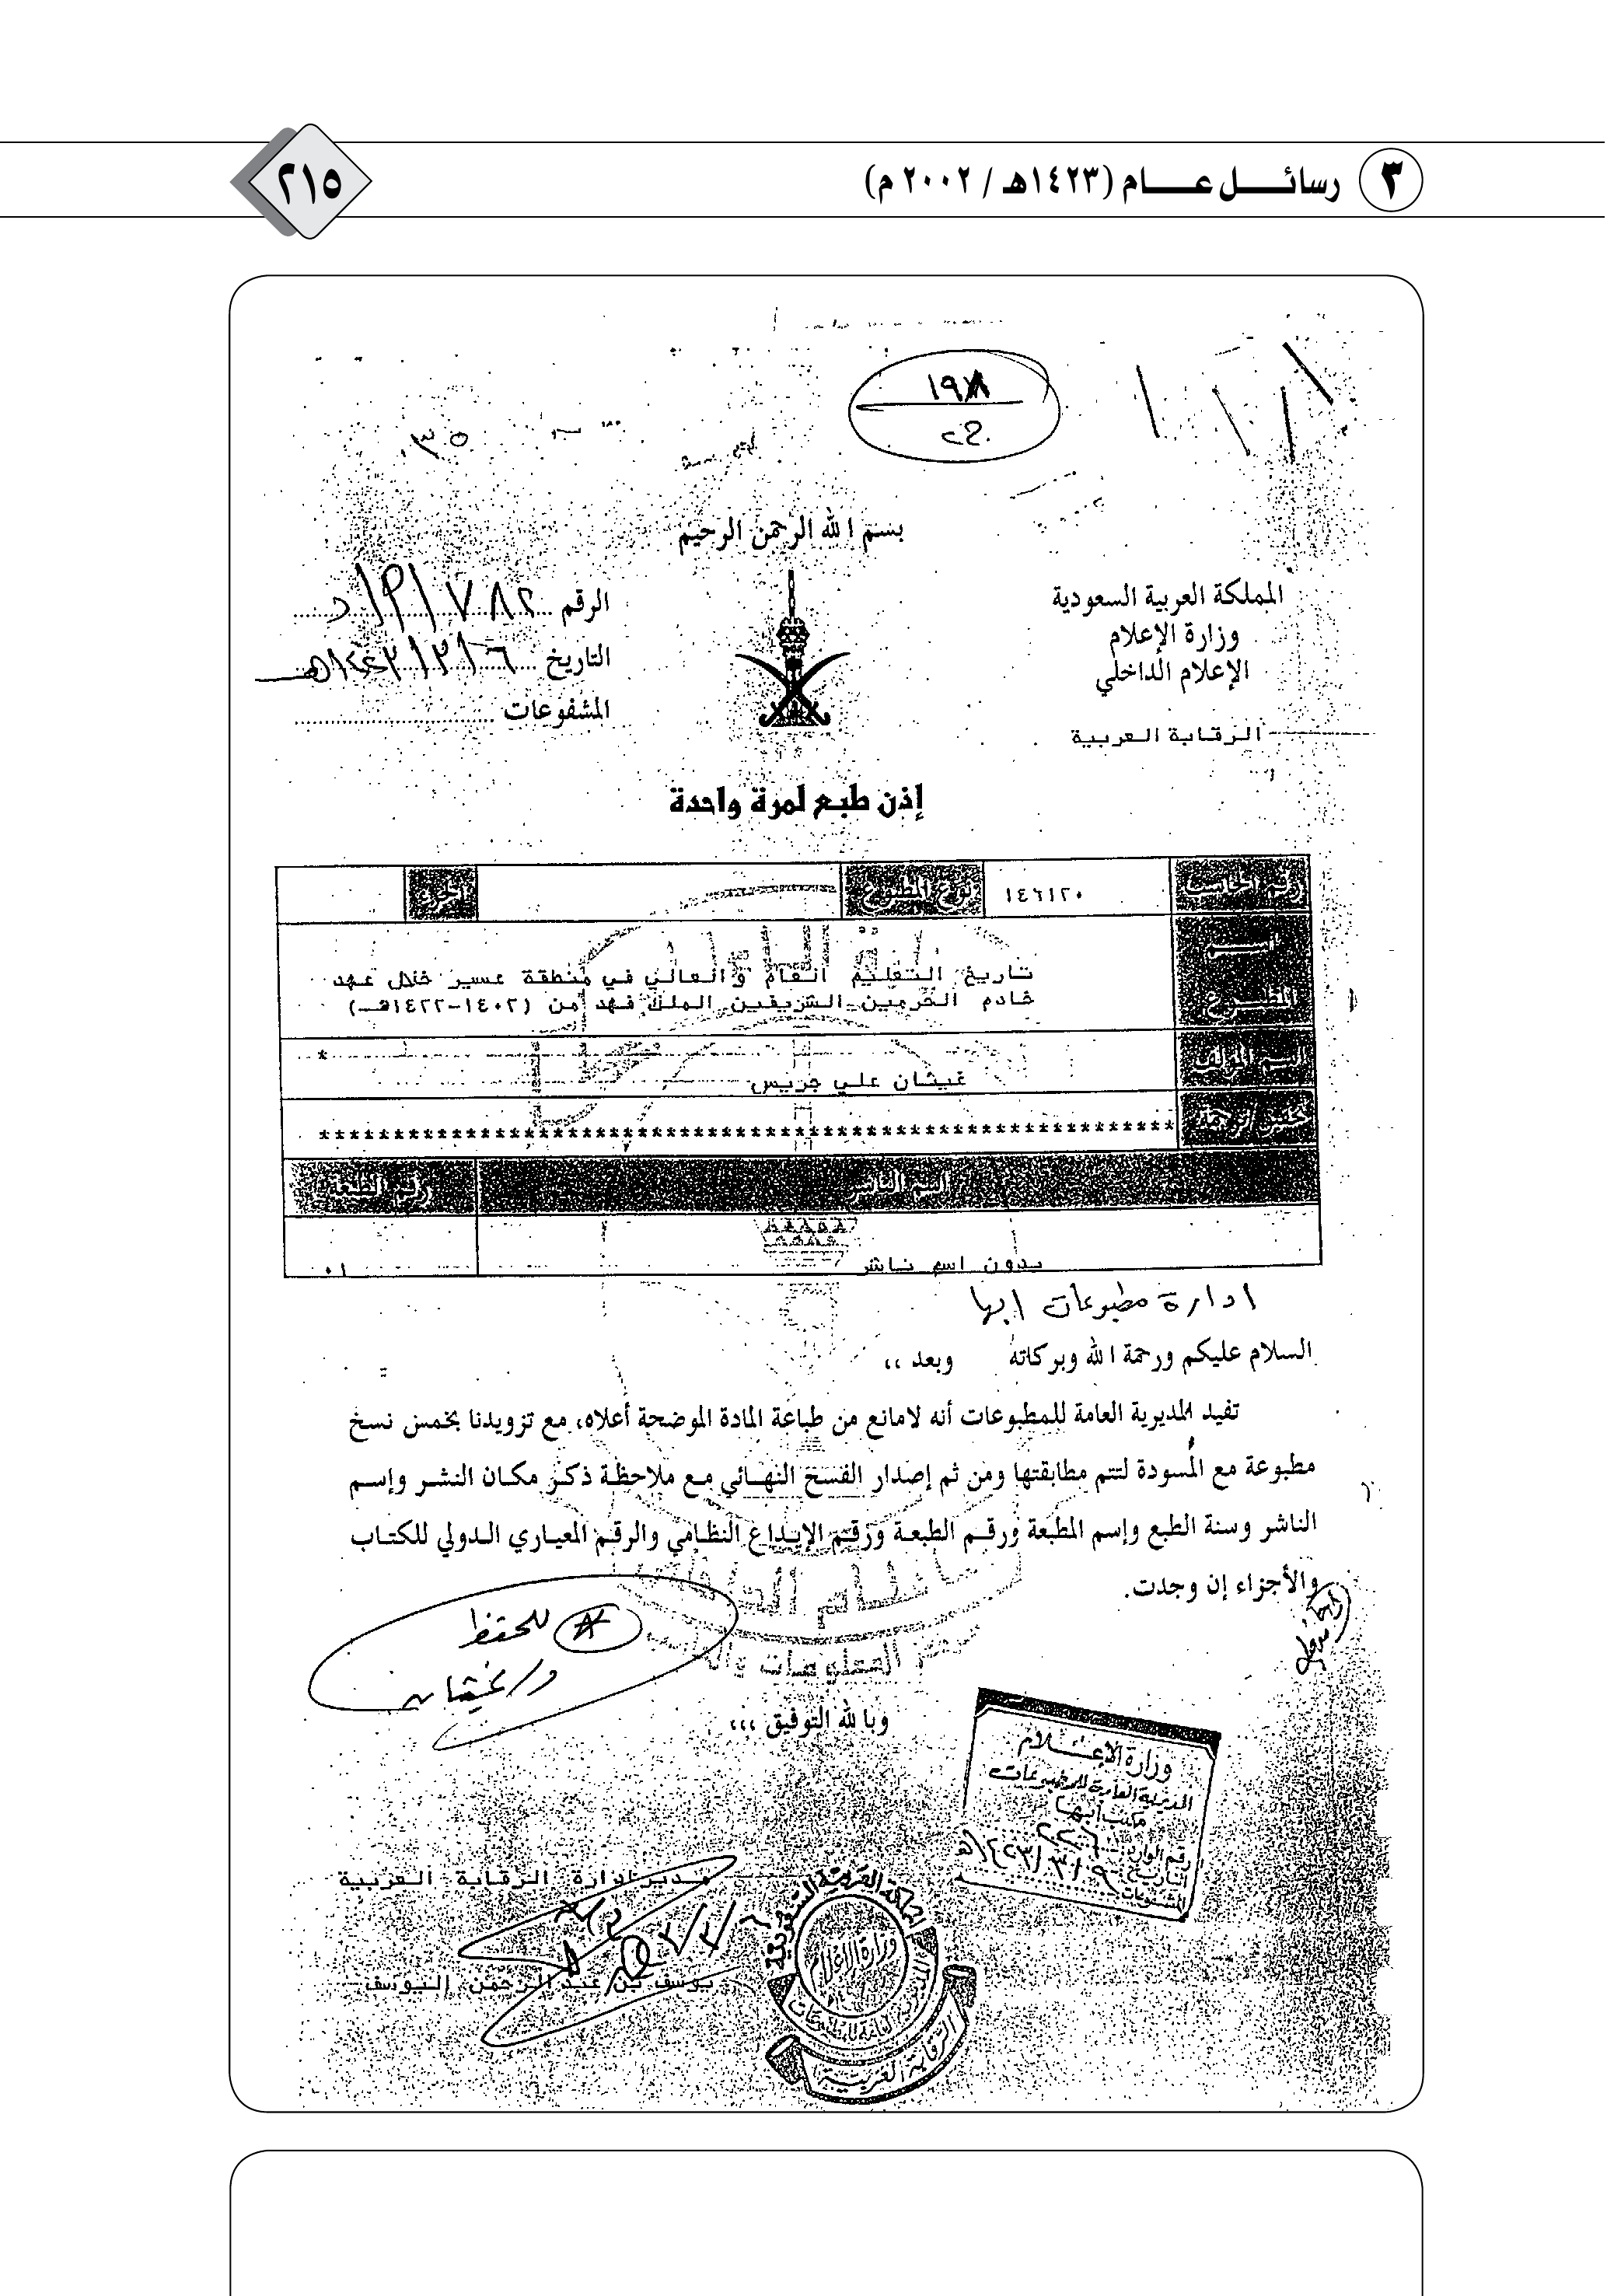 ٣ رسائل عام (١٤٢٣هـ / ٢٠٠٢ م)
٢١٥
بسم الله الرحمن الرحيم
المملكة العربية السعودية
وزارة الإعلام
الإعلام الداخلي
الرقابة العربية
الرقم ٧٨٢/م/د
التاريخ ١٤٢٣/٣/٦هـ
المشفوعات
إذن طبع لمرة واحدة
رقم الحاسب ١٤٦١٢٠ نوع المطبوع الجزء
اسم المطبوع
تاريخ التعليم العام والعالي في منطقة عسير خلال عهد
خادم الحرمين الشريفين الملك فهد من (١٤٠٢-١٤٢٢هـ)
اسم المؤلف
*
غيثان علي جريس
************************************************************
اسم الناشر رقم الطبعة
بدون اسم ناشر ٠١
ادارة مطبوعات ابها
السلام عليكم ورحمة الله وبركاته وبعد ،،
تفيد المديرية العامة للمطبوعات أنه لامانع من طباعة المادة الموضحة أعلاه، مع تزويدنا بخمس نسخ
مطبوعة مع المُسودة لتتم مطابقتها ومن ثم إصدار الفسح النهائي مع ملاحظة ذكر مكان النشر وإسم
الناشر وسنة الطبع وإسم المطبعة ورقم الطبعة ورقم الإيداع النظامي والرقم المعياري الدولي للكتاب
والأجزاء إن وجدت.
للحفظ
د/غيثان
وبالله التوفيق ،،،
وزارة الإعلام
المديرية العامة للمطبوعات
مكتب أبها
رقم الوارد
التاريخ ٩/٣/١٤٢٣هـ
المشفوعات
مدير ادارة الرقابة العربية
يوسف بن عبد الرحمن اليوسف
المملكة العربية السعودية
وزارة الاعلام
المديرية العامة للمطبوعات
الرقابة العربية